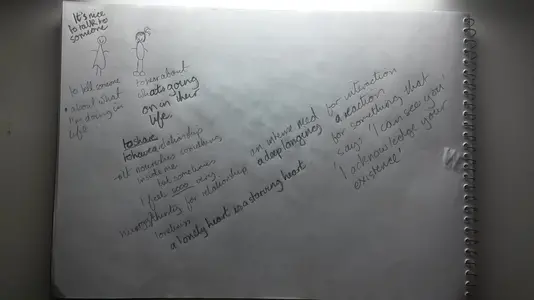 It's nice
to talk to
someone
to tell someone
about what
I'm doing in
life
to hear about
what's going
on in their
life.
to share
to have a relationship
nourishes something
inside me
but sometimes
I feel sooo very
hungry/thirsty for relationship
loneliness
a lonely heart is a starving heart
an intense need
a deep longing
for interaction
a reaction
for something that
says 'I can see you,'
'I acknowledge your
existence'